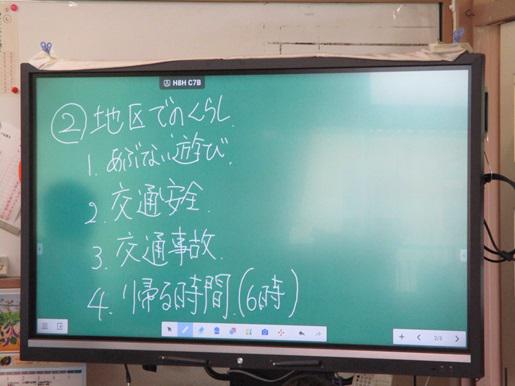 H8H C7B
② 地区でのくらし
1. あぶない遊び.
2. 交通安全.
3. 交通事故.
4. 帰る時間.(6時)
2/3